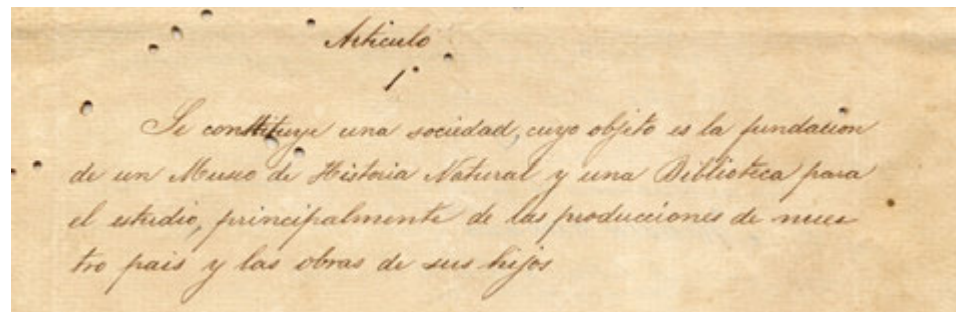 Articulo
1°
Se constituye una sociedad, cuyo objeto es la fundacion
de un Museo de Historia Natural y una Biblioteca para
el estudio, principalmente de las producciones de nues
tro pais y las obras de sus hijos